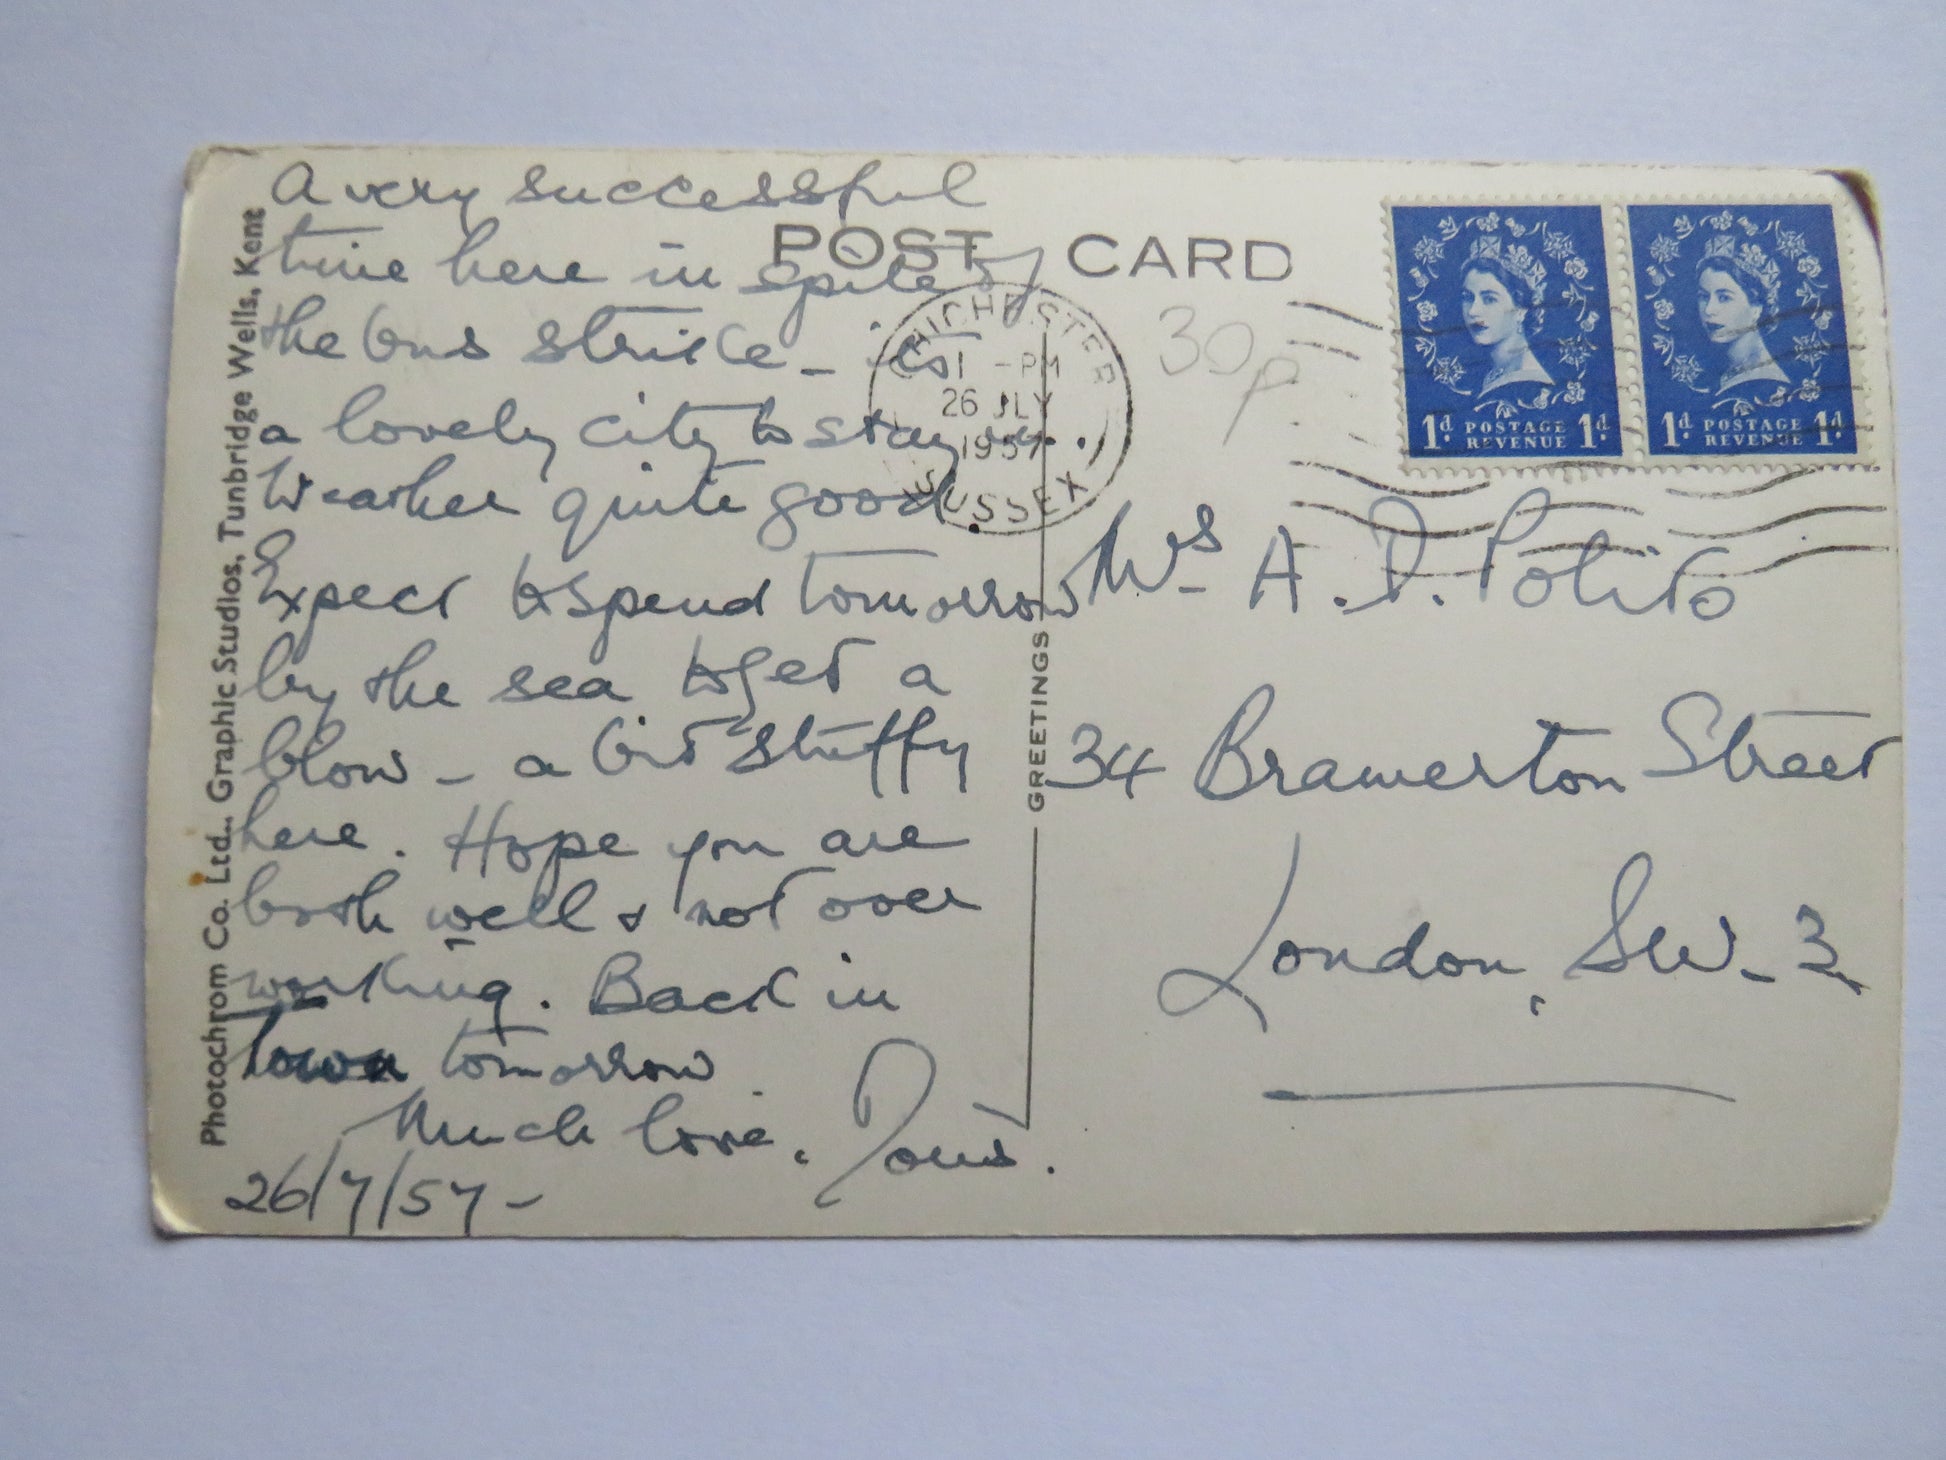 A very successful
time here in spite of
the bus strike – it's
a lovely city to stay in.
Weather quite good.
Expect to spend tomorrow
by the sea to get a
blow – a bit stuffy
here. Hope you are
both well & not over
working. Back in
Town tomorrow
Much love, Doris.
26/7/57 –
POST CARD
CHICHESTER
1 - PM
26 JLY
1957
SUSSEX
30p.
1d POSTAGE REVENUE 1d
1d POSTAGE REVENUE 1d
Mrs A. D. Polito
34 Bramerton Street
London, SW. 3
GREETINGS
Photochrom Co. Ltd., Graphic Studios, Tunbridge Wells, Kent